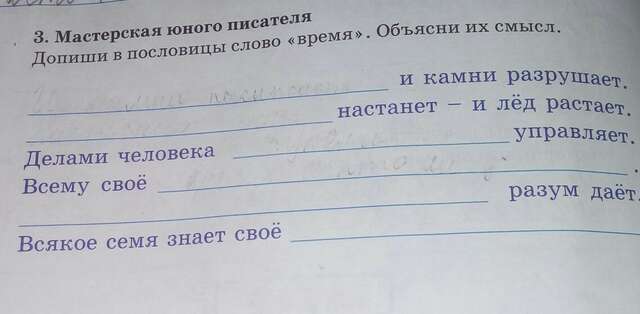 3. Мастерская юного писателя
Допиши в пословицы слово «время». Объясни их смысл.
и камни разрушает.
настанет – и лёд растает.
Делами человека управляет.
Всему своё .
разум даёт.
Всякое семя знает своё